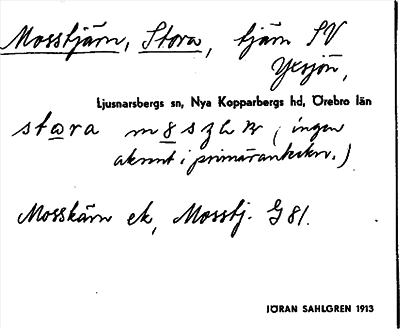 Mosstjärn, Stora, tjärn SV
Yxsjön,
Ljusnarsbergs sn, Nya Kopparbergs hd, Örebro län
stara (ingen
aksent i primäranteckn.)
Mosskärn ek, Mosstj. G 81.
JÖRAN SAHLGREN 1913